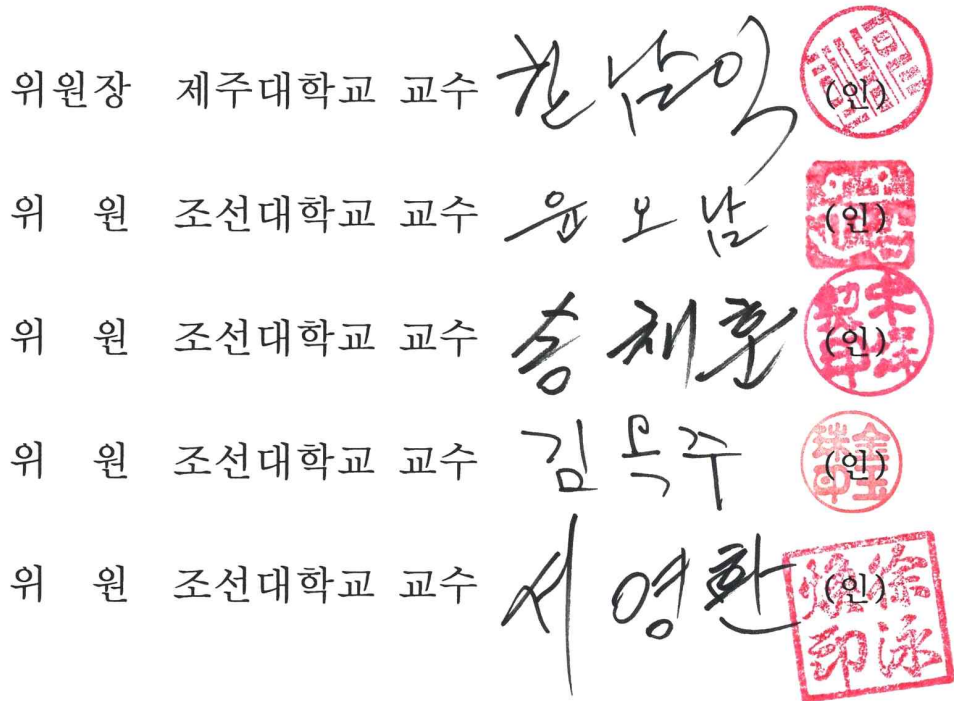 위원장 제주대학교 교수 남익 (인)
위 원 조선대학교 교수 윤오남 (인)
위 원 조선대학교 교수 송채훈 (인)
위 원 조선대학교 교수 김옥주 (인) 金玉珠印
위 원 조선대학교 교수 서영환 (인) 徐泳煥印